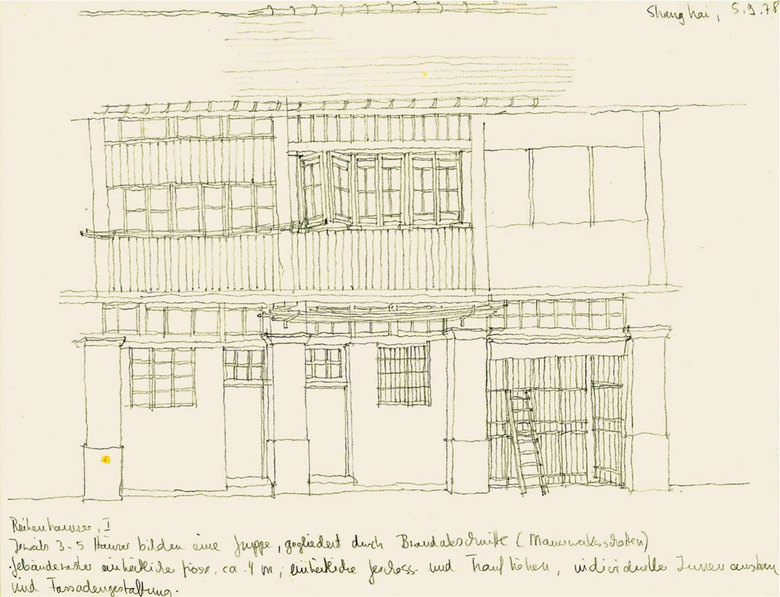 Shanghai, 5.9.78
Reihenhäuser, I
Jeweils 3-5 Häuser bilden eine Gruppe, gegliedert durch Brandabschnitte (Mauerwerksschotten)
Gebäuderaster einheitliche ca. 4 m, einheitliche Geschoss- und Traufhöhen, individueller Innenausbau
und Fassadengestaltung.